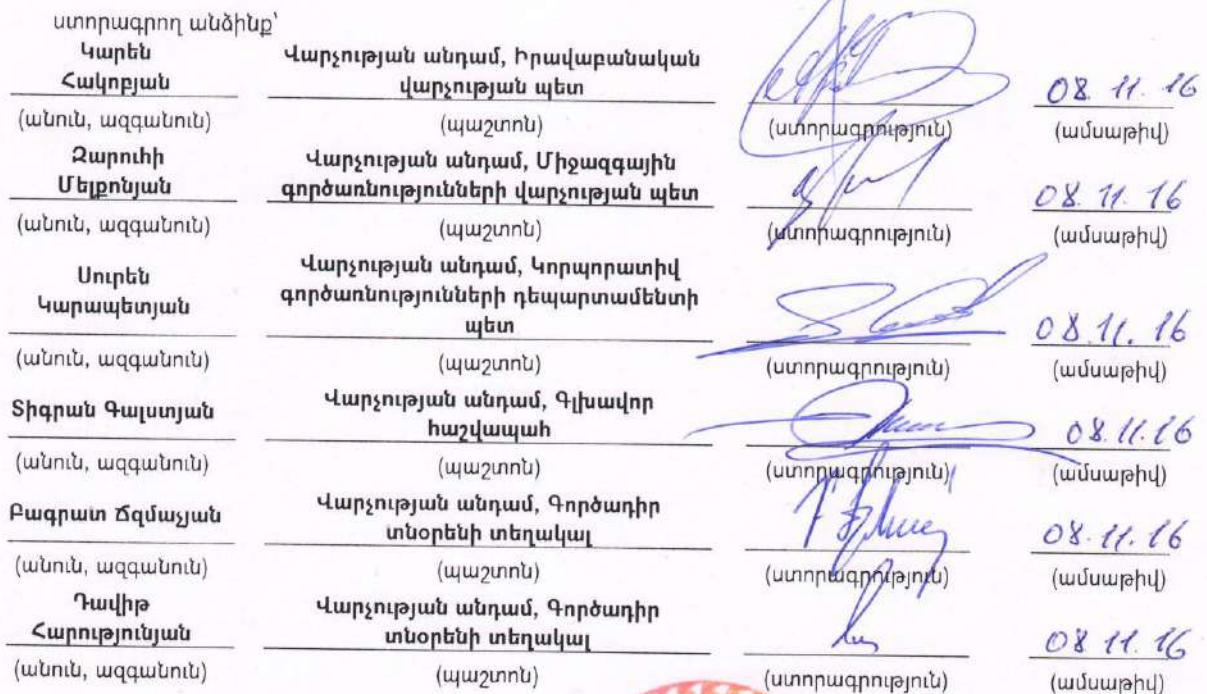 ստորագրող անձինք՝
Կարեն Վարչության անդամ, Իրավաբանական
Հակոբյան վարչության պետ 08.11.16
(անուն, ազգանուն) (պաշտոն) (ստորագրություն) (ամսաթիվ)
Զարուհի Վարչության անդամ, Միջազգային
Մելքոնյան գործառնությունների վարչության պետ 08.11.16
(անուն, ազգանուն) (պաշտոն) (ստորագրություն) (ամսաթիվ)
Սուրեն Վարչության անդամ, Կորպորատիվ
Կարապետյան գործառնությունների դեպարտամենտի
պետ 08.11.16
(անուն, ազգանուն) (պաշտոն) (ստորագրություն) (ամսաթիվ)
Տիգրան Գալստյան Վարչության անդամ, Գլխավոր
հաշվապահ 08.11.16
(անուն, ազգանուն) (պաշտոն) (ստորագրություն) (ամսաթիվ)
Բագրատ Ճզմաչյան Վարչության անդամ, Գործադիր
տնօրենի տեղակալ 08.11.16
(անուն, ազգանուն) (պաշտոն) (ստորագրություն) (ամսաթիվ)
Դավիթ Վարչության անդամ, Գործադիր
Հարությունյան տնօրենի տեղակալ 08.11.16
(անուն, ազգանուն) (պաշտոն) (ստորագրություն) (ամսաթիվ)